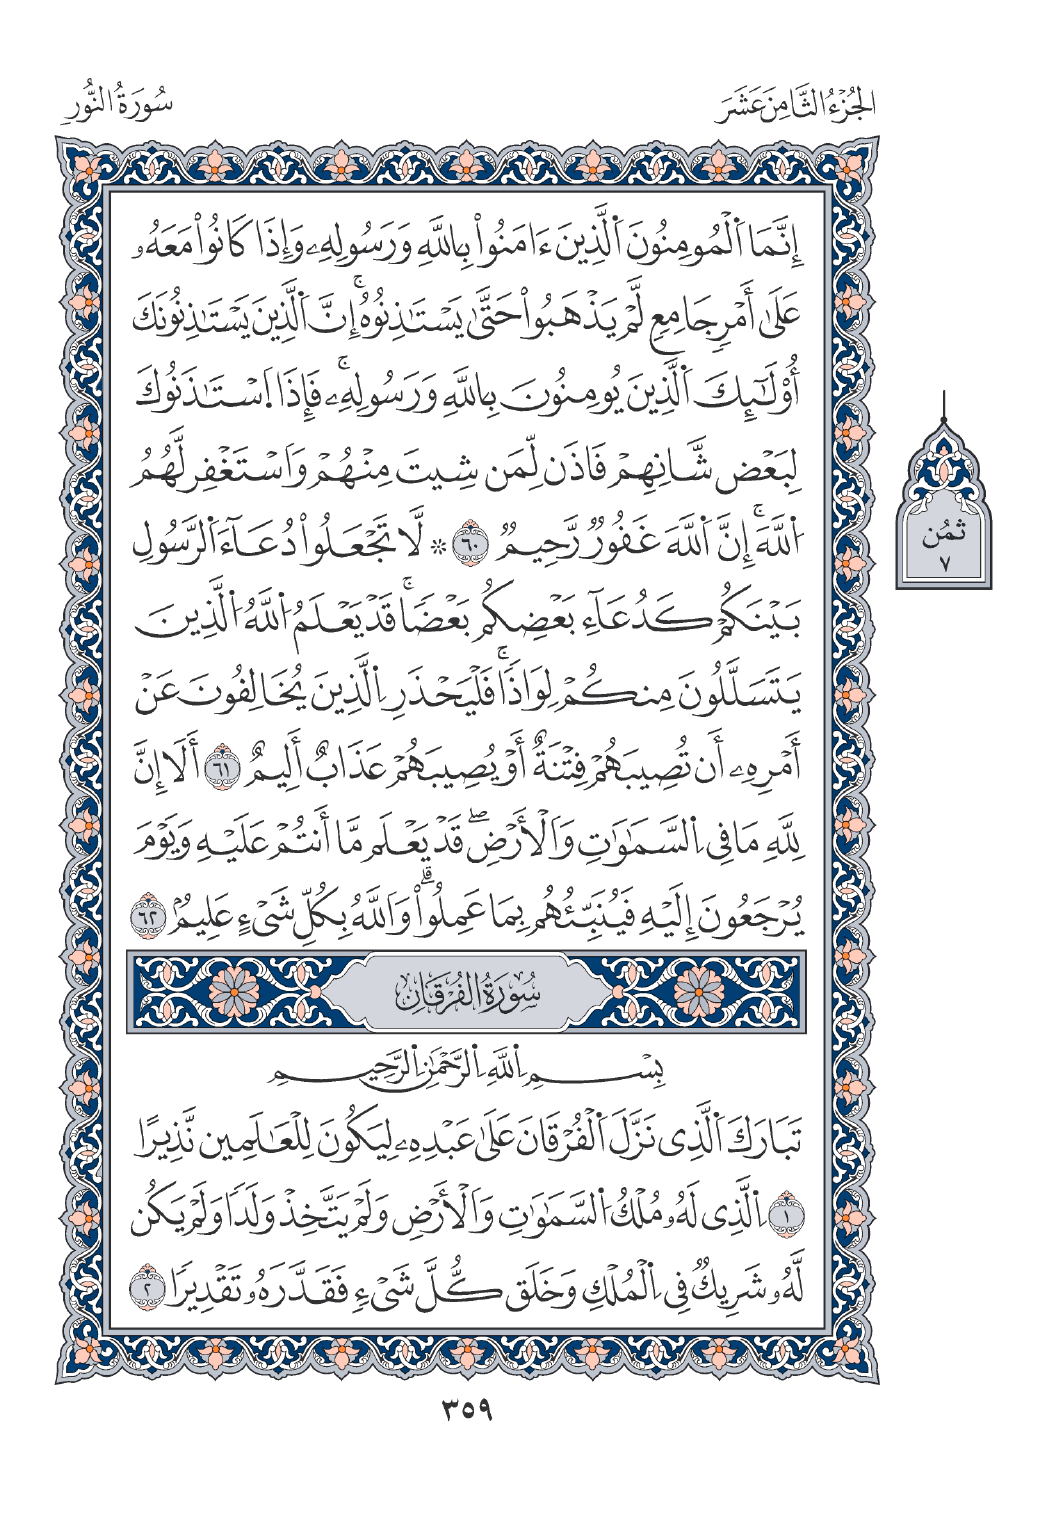 الجُزْءُ الثَّامِنَ عَشَرَ
سُورَةُ النُّور
إِنَّمَا اَ۬لْمُومِنُونَ اَ۬لَّذِينَ ءَامَنُواْ بِاللَّهِ وَرَسُولِهِۦ وَإِذَا كَانُواْ مَعَهُۥ
عَلَىٰ أَمْرٖ جَامِعٖ لَّمْ يَذْهَبُواْ حَتَّىٰ يَسْتَٰذِنُوهُۚ إِنَّ اَ۬لَّذِينَ يَسْتَٰذِنُونَكَ
أُوْلَٰٓئِكَ اَ۬لَّذِينَ يُومِنُونَ بِاللَّهِ وَرَسُولِهِۦۚ فَإِذَا اَ۪سْتَٰذَنُوكَ
لِبَعْضِ شَّانِهِمْ فَاذَن لِّمَن شِيتَ مِنْهُمْ وَاَسْتَغْفِر لَّهُمُ
اُ۬للَّهَۚ إِنَّ اَ۬للَّهَ غَفُورٞ رَّحِيمٞ ٦٠ ۞ لَّا تَجْعَلُواْ دُعَآءَ اَ۬لرَّسُولِ
بَيْنَكُمْ كَدُعَآءِ بَعْضِكُم بَعْضٗاۚ قَدْ يَعْلَمُ اُ۬للَّهُ اُ۬لَّذِينَ
يَتَسَلَّلُونَ مِنكُمْ لِوَاذٗاۚ فَلْيَحْذَرِ اِ۬لَّذِينَ يُخَالِفُونَ عَنْ
أَمْرِهِۦ أَن تُصِيبَهُمْ فِتْنَةٌ أَوْ يُصِيبَهُمْ عَذَابٌ أَلِيمٌ ٦١ أَلَا إِنَّ
لِلَّهِ مَا فِي اِ۬لسَّمَٰوَٰتِ وَاَلْأَرْضِۖ قَدْ يَعْلَم مَّا أَنتُمْ عَلَيْهِ وَيَوْمَ
يُرْجَعُونَ إِلَيْهِ فَيُنَبِّئُهُم بِمَا عَمِلُواْۗ وَاَللَّهُ بِكُلِّ شَيْءٍ عَلِيمُۢ ٦٢
ثمُن
٧
سُورَةُ الفُرْقَانِ
بِسْمِ اِ۬للَّهِ اِ۬لرَّحْمَٰنِ اِ۬لرَّحِيمِ
تَبَارَكَ اَ۬لَّذِي نَزَّلَ اَ۬لْفُرْقَانَ عَلَىٰ عَبْدِهِۦ لِيَكُونَ لِلْعَٰلَمِين نَّذِيرًا
١ اِ۬لَّذِي لَهُۥ مُلْكُ اُ۬لسَّمَٰوَٰتِ وَاَلْأَرْضِ وَلَمْ يَتَّخِذْ وَلَدٗا وَلَمْ يَكُن
لَّهُۥ شَرِيكٞ فِي اِ۬لْمُلْكِ وَخَلَق كُّلَّ شَيْءٖ فَقَدَّرَهُۥ تَقْدِيرٗا ٢
٣٥٩